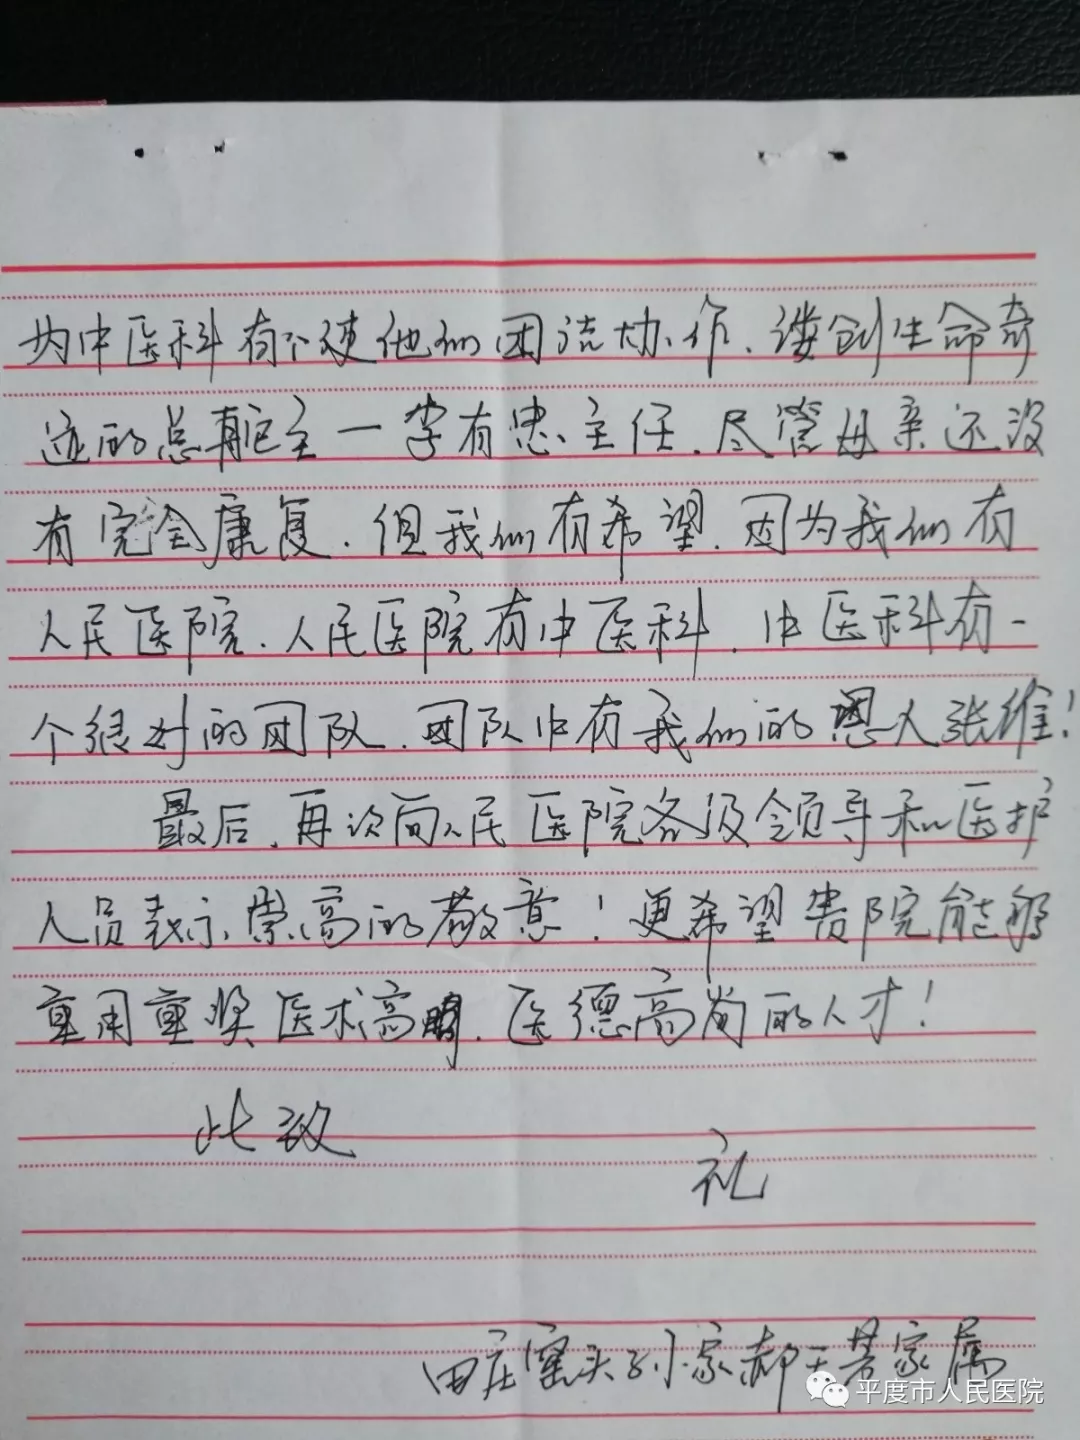 为中医科有个使他们团结协作、缕创生命奇
迹的总舵主一李有忠主任.尽管母亲还没
有完全康复.但我们有希望.因为我们有
人民医院.人民医院有中医科.中医科有一
个很好的团队.团队中有我们的恩人张维!
最后.再次向人民医院各级领导和医护
人员表示崇高的敬意!更希望贵院能够
重用重奖医术高明.医德高尚的人才!
此致
礼
田庄窑头孙家郝天芳家属
平度市人民医院